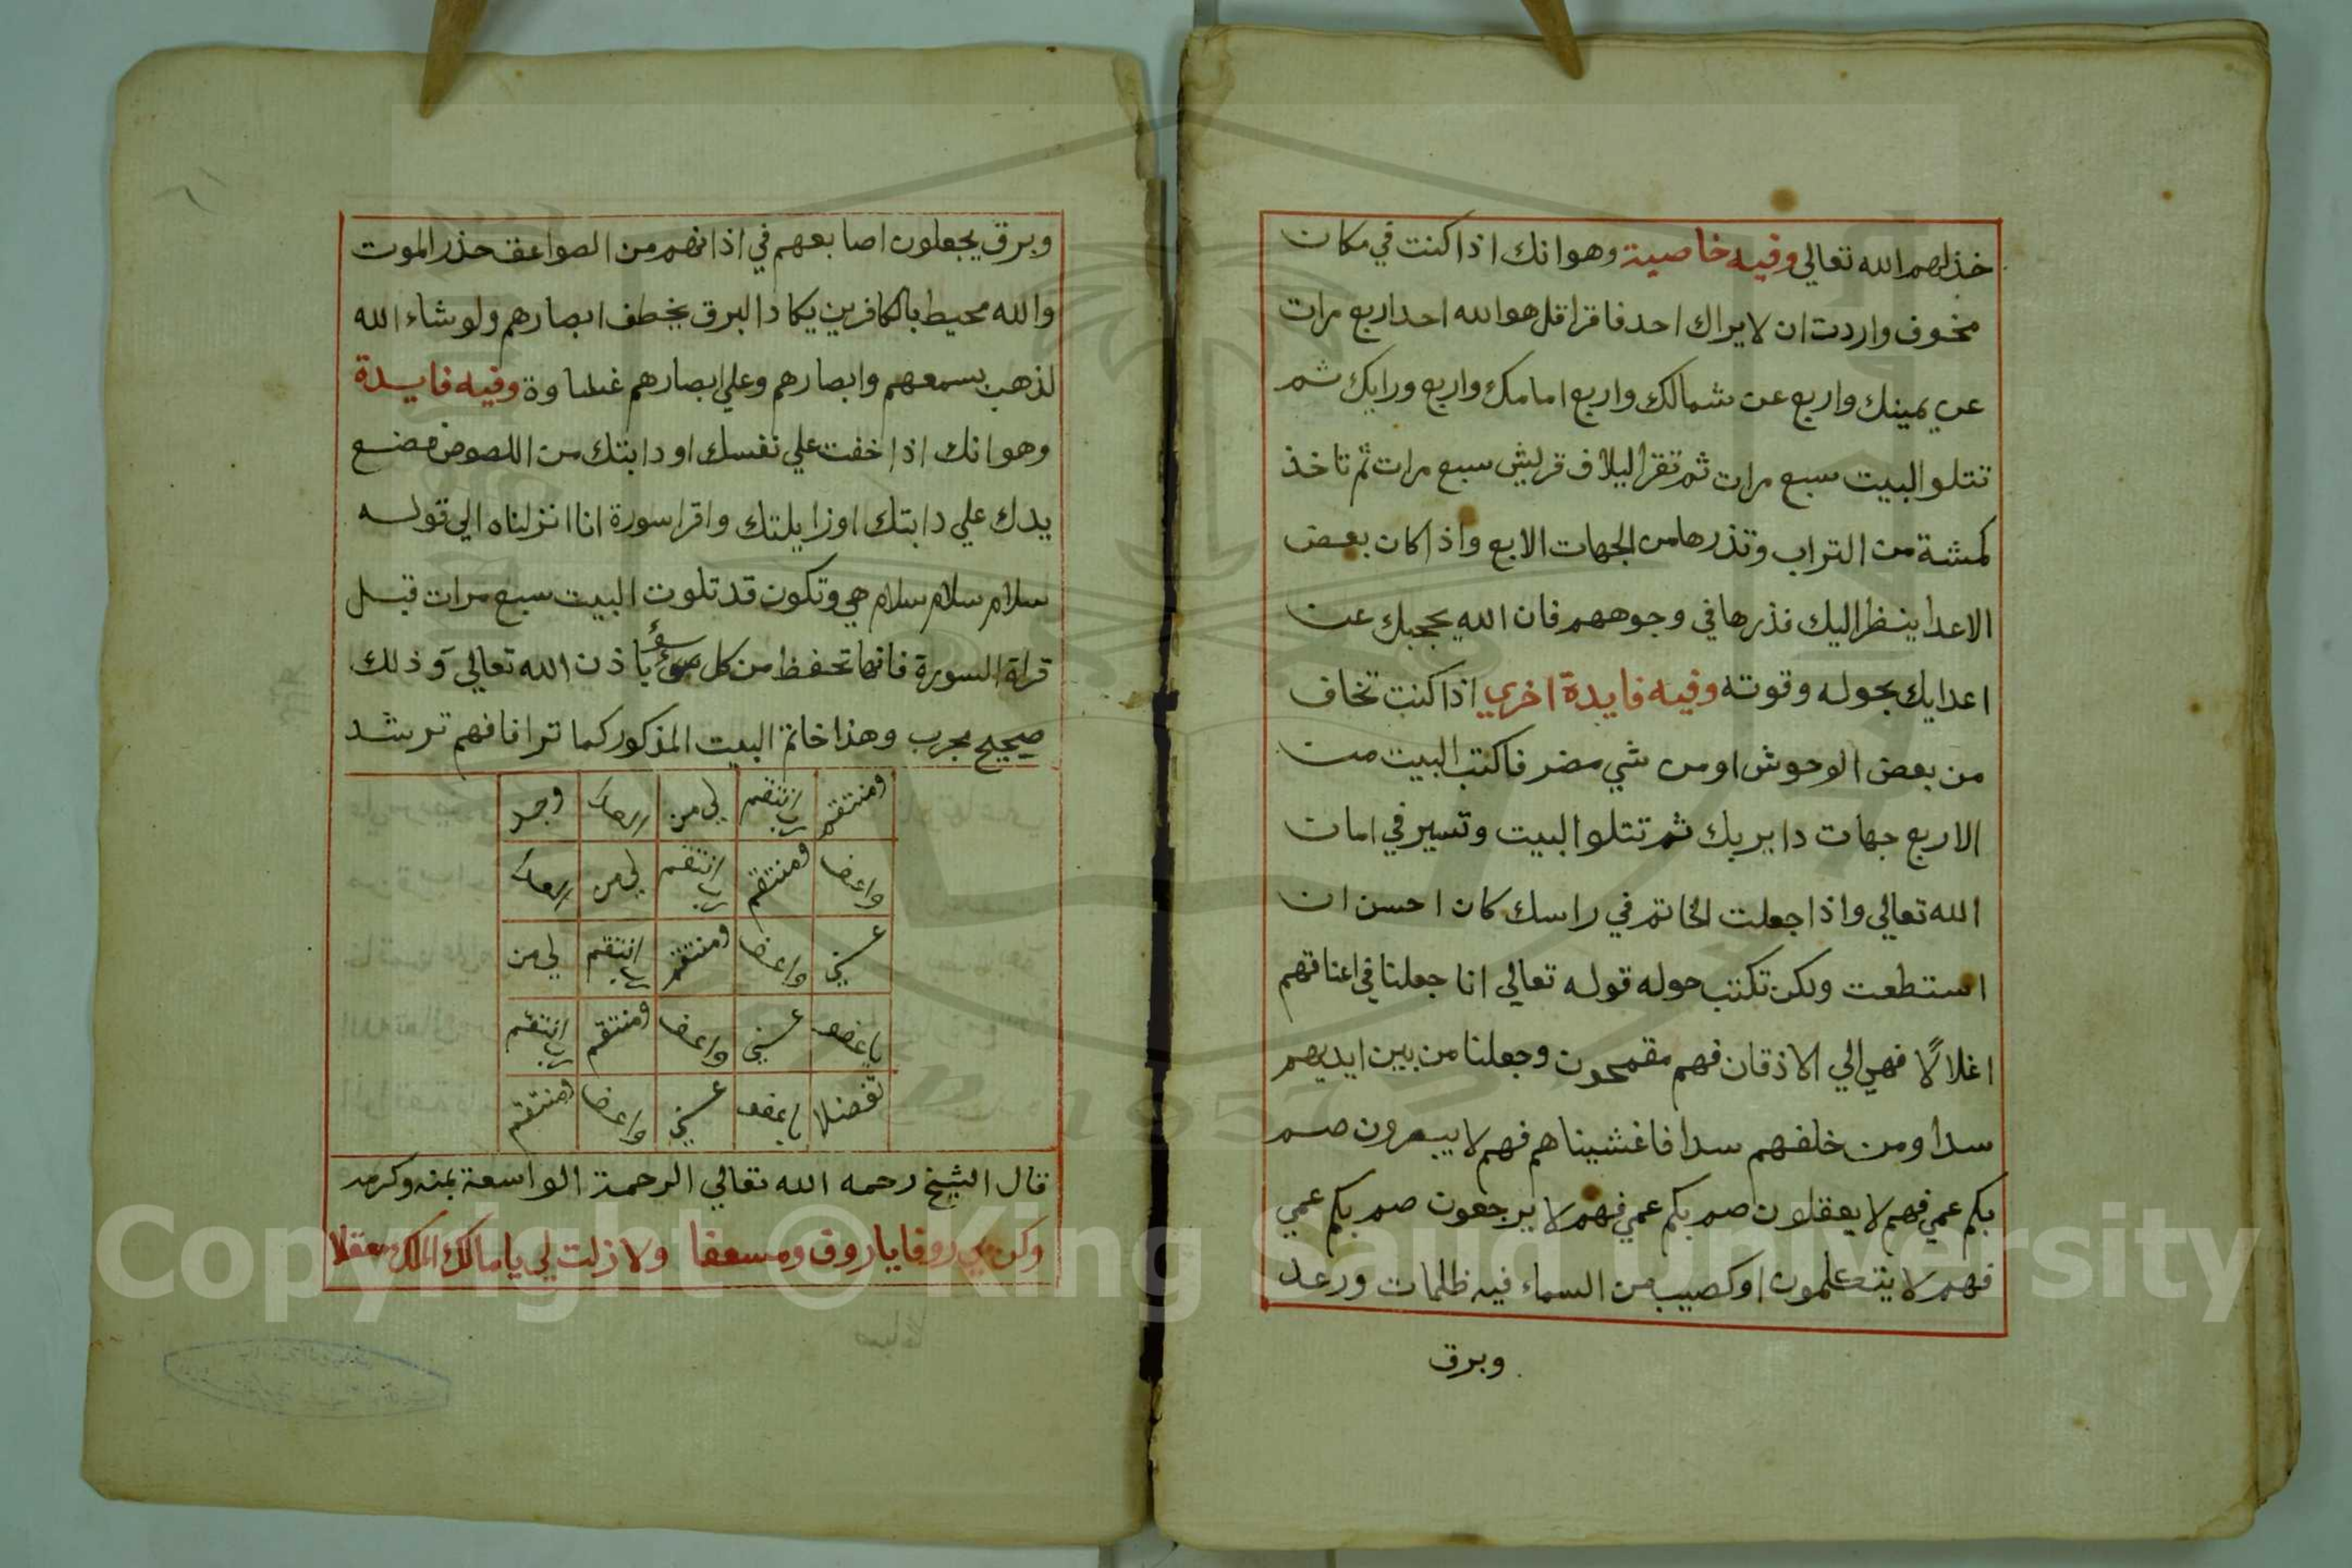 خذلهم الله تعالي وفيه خاصية وهو انك اذا كنت في مكان
مخوف واردت ان لا يراك احد فاقرا قل هو الله احد اربع مرات
عن يمينك واربع عن شمالك واربع امامك واربع ورايك ثم
تتلو البيت سبع مرات ثم تقرا ليلاف قريش سبع مرات ثم تاخذ
كمشة من التراب وتذرها من الجهات الابع واذا كان بعض
الاعدا ينظر اليك فذرها في وجوههم فان الله يحجبك عن
اعدايك بحوله وقوته وفيه فايدة اخري اذا كنت تخاف
من بعض الوحوش او من شي مضر فاكتب البيت من
الاربع جهات دايريك ثم تتلوا البيت وتسير في امان
الله تعالي واذا جعلت الخاتم في راسك كان احسن ان
استطعت ولكن تكتب حوله قوله تعالي انا جعلنا في اعناقهم
اغلالًا فهي الي الاذقان فهم مقمحون وجعلنا من بين ايديهم
سدا ومن خلفهم سدا فاغشيناهم فهم لا يبصرون صم
بكم عمي فهم لا يعقلون صم بكم عمي فهم لا يرجعون صم بكم عمي
فهم لا يتعلمون او كصيب من السماء فيه ظلمات ورعد
وبرق
وبرق يجعلون اصابعهم في اذانهم من الصواعق حذر الموت
والله محيط بالكافرين يكاد البرق يخطف ابصارهم ولو شاء الله
لذهب بسمعهم وابصارهم وعلي ابصارهم غشاوة وفيه فايدة
وهو انك اذا خفت علي نفسك او دابتك من اللصوص فضع
يدك علي دابتك او زايلتك واقرا سورة انا انزلناه الي قوله
سلام سلام سلام هي وتكون قد تلوت البيت سبع مرات قبل
قراة السورة فانها تحفظ من كل سوء باذن الله تعالي وذلك
صحيح مجرب وهذا خاتم البيت المذكور كما ترا فافهم ترشد
ومنتقم انتقم لي من وجد
واعضا ومنتقم انتقم لي من
واعضا ومنتقم انتقم لي من
واعضا ومنتقم انتقم
تفضلا واعضا ومنتقم
قال الشيخ رحمه الله تعالي الرحمة الواسعة بمنه وكرمه
وكن بي روفا يا روف ومسعفا ولا زلت لي يا مالك الملك معقلا
Copyright © King Saud University
1957